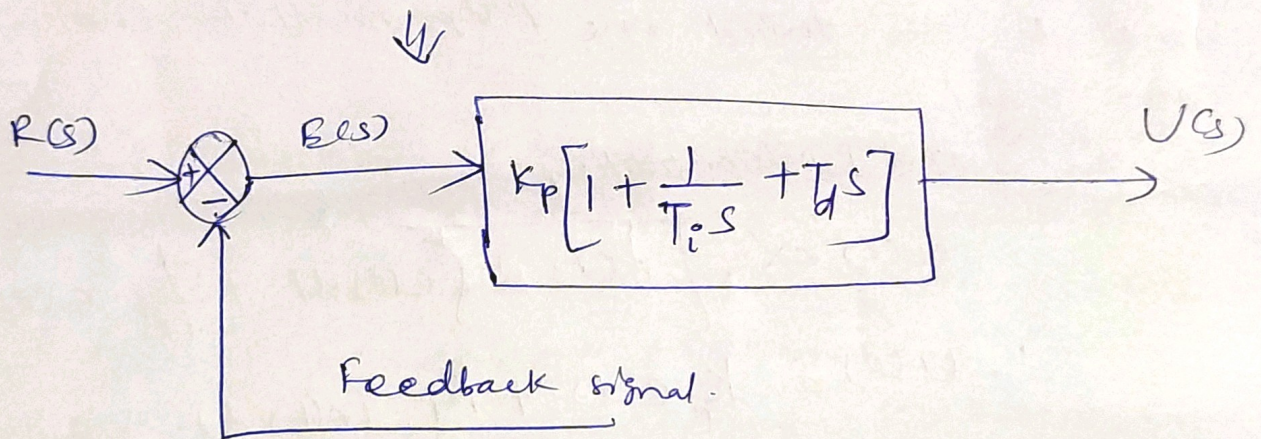 R(s)
E(s)
U(s)
+
-
Kp[1 + 1/(Ti s) + Td s]
Feedback signal.